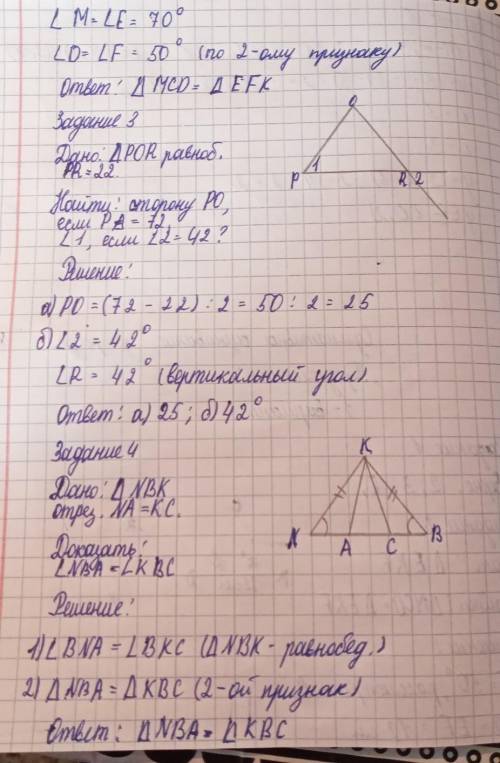 ∠ M = ∠E = 70°
∠D = ∠F = 50° (по 2-ому признаку)
Ответ: Δ MCD = Δ EFK
Задание 3
Дано: ΔPOR равноб.
PR = 22
Найти: сторону PO,
если PΔ = 72,
∠1, если ∠2 = 42?
Решение:
а) PO = (72 - 22) : 2 = 50 : 2 = 25
б) ∠2 = 42°
∠R = 42° (вертикальный угол)
Ответ: а) 25; б) 42°
Задание 4
Дано: Δ NBK
отрез. NA = KC.
Доказать:
∠NBA = ∠KBC
Решение:
1) ∠BNA = ∠BKC (ΔNBK - равнобед.)
2) ΔNBA = ΔKBC (2-ой признак)
Ответ: ΔNBA = ΔKBC
O
P 1 R 2
K
N A C B